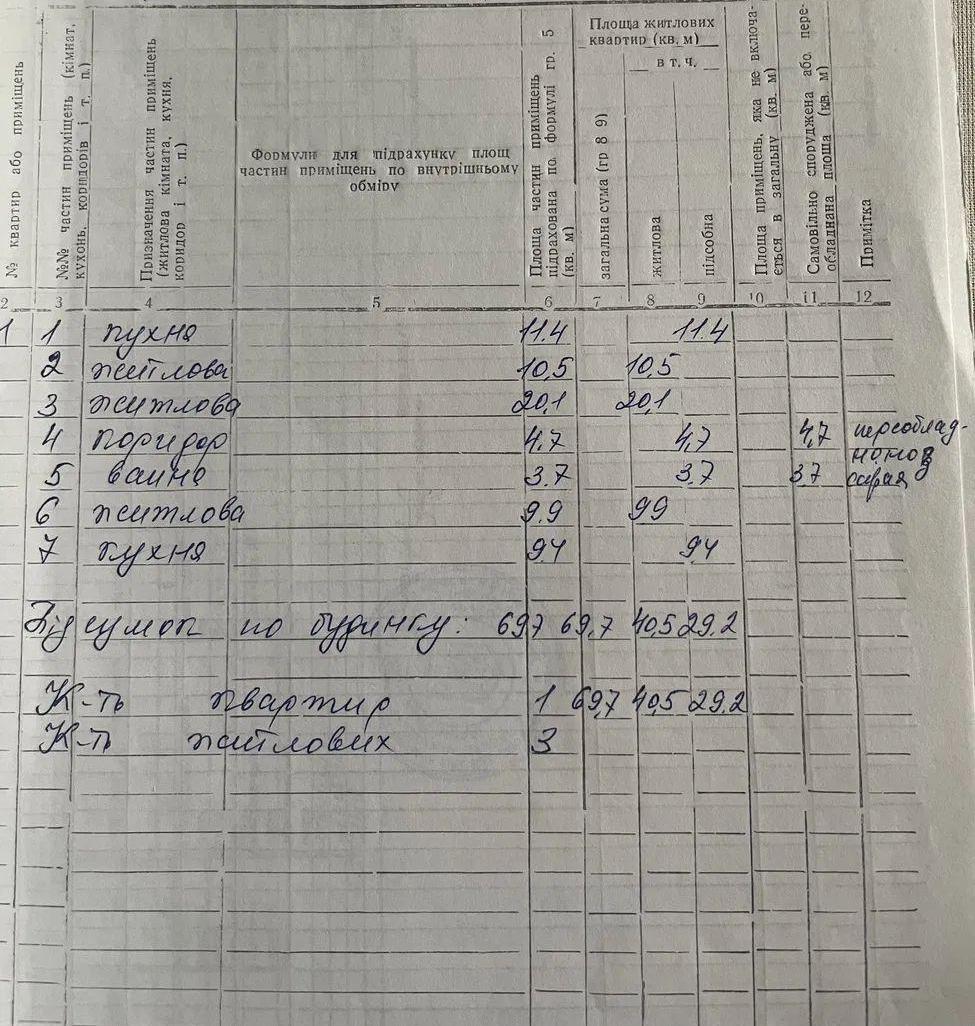 № квартир або приміщень
№№ частин приміщень (кімнат,
кухонь, коридорів і т. п.)
Призначення частин приміщень
(житлова кімната, кухня,
коридор і т. п.)
Формули для підрахунку площ
частин приміщень по внутрішньому
обміру
Площа частин приміщень
підрахована по формулі гр. 5
(кв. м)
Площа житлових
квартир (кв. м)
в т. ч.
загальна сума (гр 8 9)
житлова
підсобна
Площа приміщень, яка не включа-
ється в загальну (кв. м)
Самовільно споруджена або пере-
обладнана площа (кв. м)
Примітка
2 3 4 5 6 7 8 9 10 11 12
1 1 кухня 11.4 11.4
2 житлова 10,5 10,5
3 житлова 20,1 20,1
4 коридор 4,7 4,7 4,7 переоблад-
5 ванна 3.7 3.7 3.7 сарая
6 житлова 9.9 9.9
7 кухня 9.4 9.4
Підсумок по будинку: 69.7 69,7 40,5 29.2
К-ть квартир 1 69,7 40,5 29.2
К-ть житлових 3